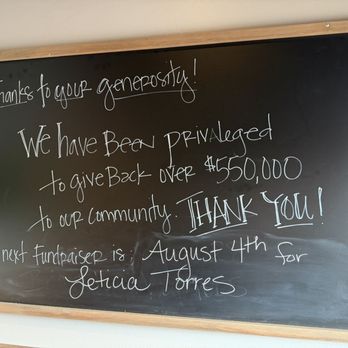 Thanks to your generosity!
We have Been privaleged
to give Back over $550,000
to our community. THANK YOU!
next Fundraiser is: August 4th for
Leticia Torres